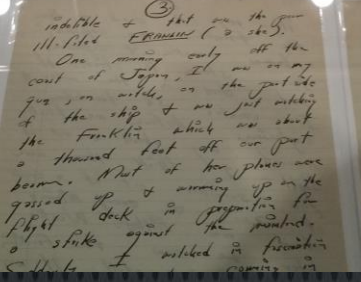 ③
indelible & that was the poor
ill-fated FRANKLIN (a she).
One morning early off the
coast of Japan, I was on my
gun, on watch, on the port side
of the ship & was just watching
the Franklin which was about
a thousand feet off our port
beam. Most of her planes were
gassed up & warming up on the
flight deck in preparation for
a strike against the mainland.
I watched in fascination
Suddenly coming in